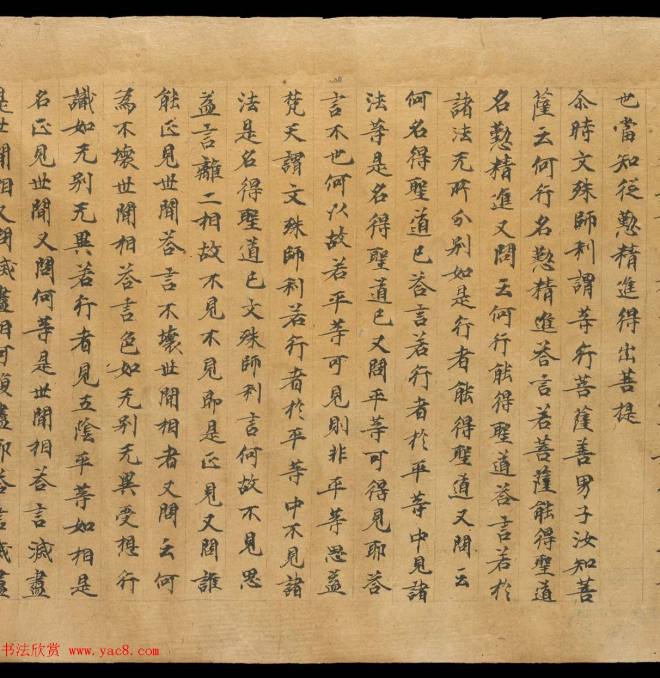 也當知從懃精進得出菩提
尒時文殊師利謂等行菩薩善男子汝知菩
薩云何行名懃精進荅言若菩薩能得聖道
名懃精進又問云何行能得聖道荅言若於
諸法无所分別如是行者能得聖道又問云
何名得聖道已荅言若行者於平等中見諸
法等是名得聖道已又問平等可得見耶荅
言不也何以故若平等可見則非平等思益
梵天謂文殊師利若行者於平等中不見諸
法是名得聖道已文殊師利言何故不見思
益言離二相故不見不見即是正見又問誰
能正見世間荅言不壞世間相者又問云何
為不壞世間相荅言色如无別无異受想行
識如无別无異若行者見五陰平等如相是
名正見世間又問何等是世間相荅言滅盡
是世間相又問滅盡相可復盡耶荅言滅盡
书法欣赏 www.yac8.com